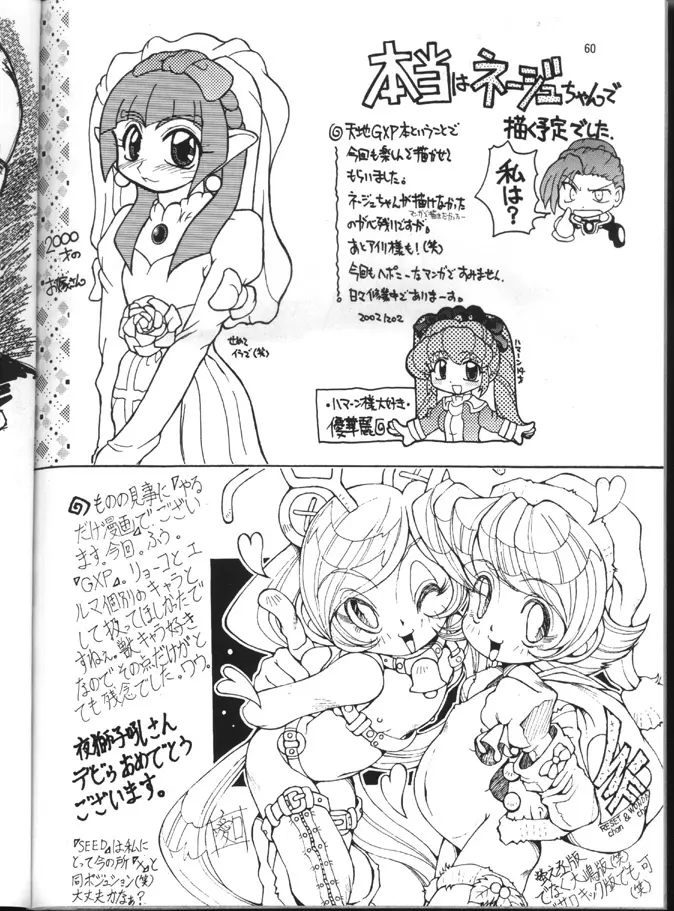 60
本当はネージュちゃんで
描く予定でした。
私は?
天地GXP本ということで
今回も楽しんで描かせて
もらいました。
ネージュちゃんが描けなかった
のが心残りですが。
あとアイリ様も!(笑)
今回もヘボミーなマンガですみません。
日々修業中でありまーす。
2002/202
2000
才の
お嫁さん
せめて
イラスで(笑)
ハマーン様
・ハマーン様大好き・
優華麗
ものの見事に『やる
だけ漫画』でござい
ます。今回。ふぅ。
『GXP』。リョーコとエ
ルマ個別のキャラと
して扱ってほしかったで
すねぇ。獣キャラ好き
なのでその点だけがと
ても残念でした。ワウ。
夜獅子吼さん
デビゥおめでとう
ございます。
『SEED』は私に
とって今の所『X』と
同ポジション(笑)
大丈夫かなぁ?
RESET &
chan
でなく大嶋版(笑)
サワキック版でも可
(笑)